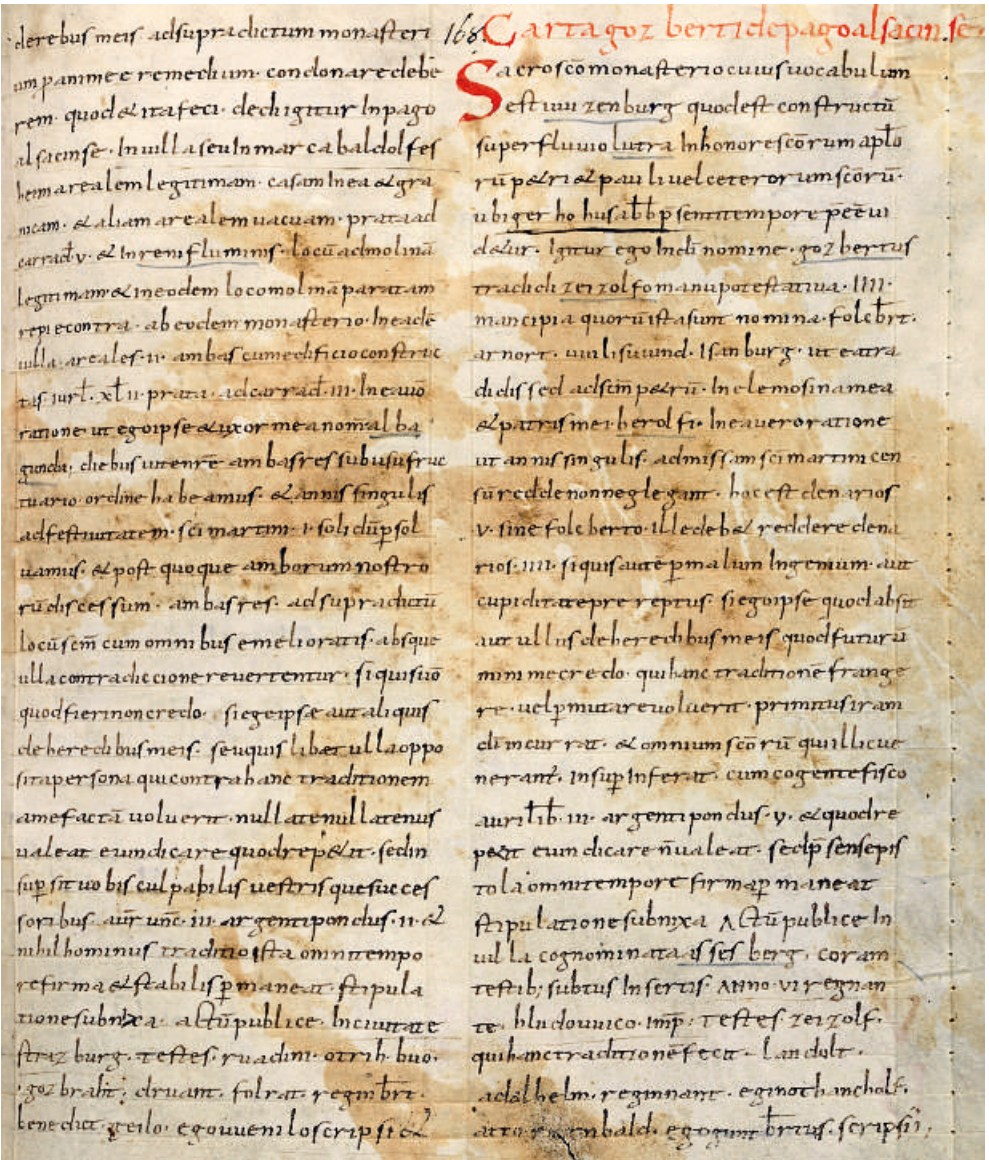 de rebus meis ad supra dictum monasteri
um panimee remedium. condonare debe
rem. quod & ita feci. de chigitur In pago
alsacinse. In uilla seu In marca baldolfes
heim arealem legitimam. casam In ea & gra
nicam. & aliam arealem uacuam. prata ad
carrad. v. & In reni fluminis. locū ad molinā
legitimam & in eodem loco molinā paratam
repi e contra. ab eodem monasterio. In eadē
uilla. areales. ii. ambas cum edificio construc
tas iurł. xl ii. prata. ad carrad. iii. In ea uō
ratione ut ego ipse & uxor mea nom̄ alba
gundi, diebus uitę nrē ambas res sub usu fruc
tuario ordine habeamus. & annis singulis
ad festiuitatem. sci martini. i. solidū p̱sol
uamus. & post quoque amborum nostro
rū discessum. ambas res. ad supra dictū
locū scm̄ cum omnibus emelioratis. absque
ulla contradiccione reuertentur. si quis uō
quod fieri non credo. si egeipse aut aliquis
de heredibus meis. seu quis libet ulla oppo
sita persona qui contra hanc traditionem
a me factā uoluerit. nullate nullatenus
ualeat euindicare quod rep&it. sed in
sup̱ sit uobis culpabilis uestrisque succes
soribus aur̄ unc̄. iii. argenti pondus. ii. &
nihil hominus traditio ista omni tempo
re firma & stabilis p̱maneat. stipula
tione subnixa. actū publice. In ciuitate
straz burg. testes. ruadini. otrih. buo.
goz braht; druant. folrat. reginb̄rt.
benedict. geilo. ego uueni lo scripsi &
168. Carta goz berti de pago alsacin. se.
Sacro sco monasterio cuius uocabulum
est uuizenburg quod est constructū
super fluuio lutra In honore scōrum ap̄lo
rū p&ri & pauli uel ceterorum scōrū.
ubi gerhohus abb p̄senti tempore p̄eē ui
d&ur. Igitur ego In dī nomine. goz bertus
tradidi zeizolfo manu potestatiua. IIII.
mancipia quorū ista sunt nomina. folcb̄rt.
arnort. uuilisuuind. Isanburg. ut ea tra
didissed ad scm̄ p&rū. In elemosina mea
& patris mei berolfi. In ea uero ratione
ut annis singulis. ad missam sci martini cen
sū redde non neglegant. hoc est denarios
v. sine folcberto. ille deb& reddere dena
rios. IIII. si quis autē p̱ malum Ingenium. aut
cupiditate pre reptus. si ego ipse quod absit
aut ullus de heredibus meis quod futurū
minime credo. qui hanc traditionē frange
re. uel p̱mutare uoluerit. primitus iram
dī incurrat. & omnium scōrū qui illic ue
nerant̄. Insup̱ Inferat. cum cogente fisco
auri lib̄. iii. argenti pondus. v. & quod re
p&it euindicare n̄ ualeat. sed p̄sens epis
tola omni tempore firma p̱maneat
stipulatione subnixa Actū publice In
uilla cognominata asses berg. coram
testib; subtus Insertis. Anno. vi regnan
te. hludouuico. imp̄. testes zeizolf.
qui hanc traditionē fecit. landolt.
adalhelm. reginnant. eginoth ancholf.
atto. eburbald. ego gunt b̄rtus. scripsi;